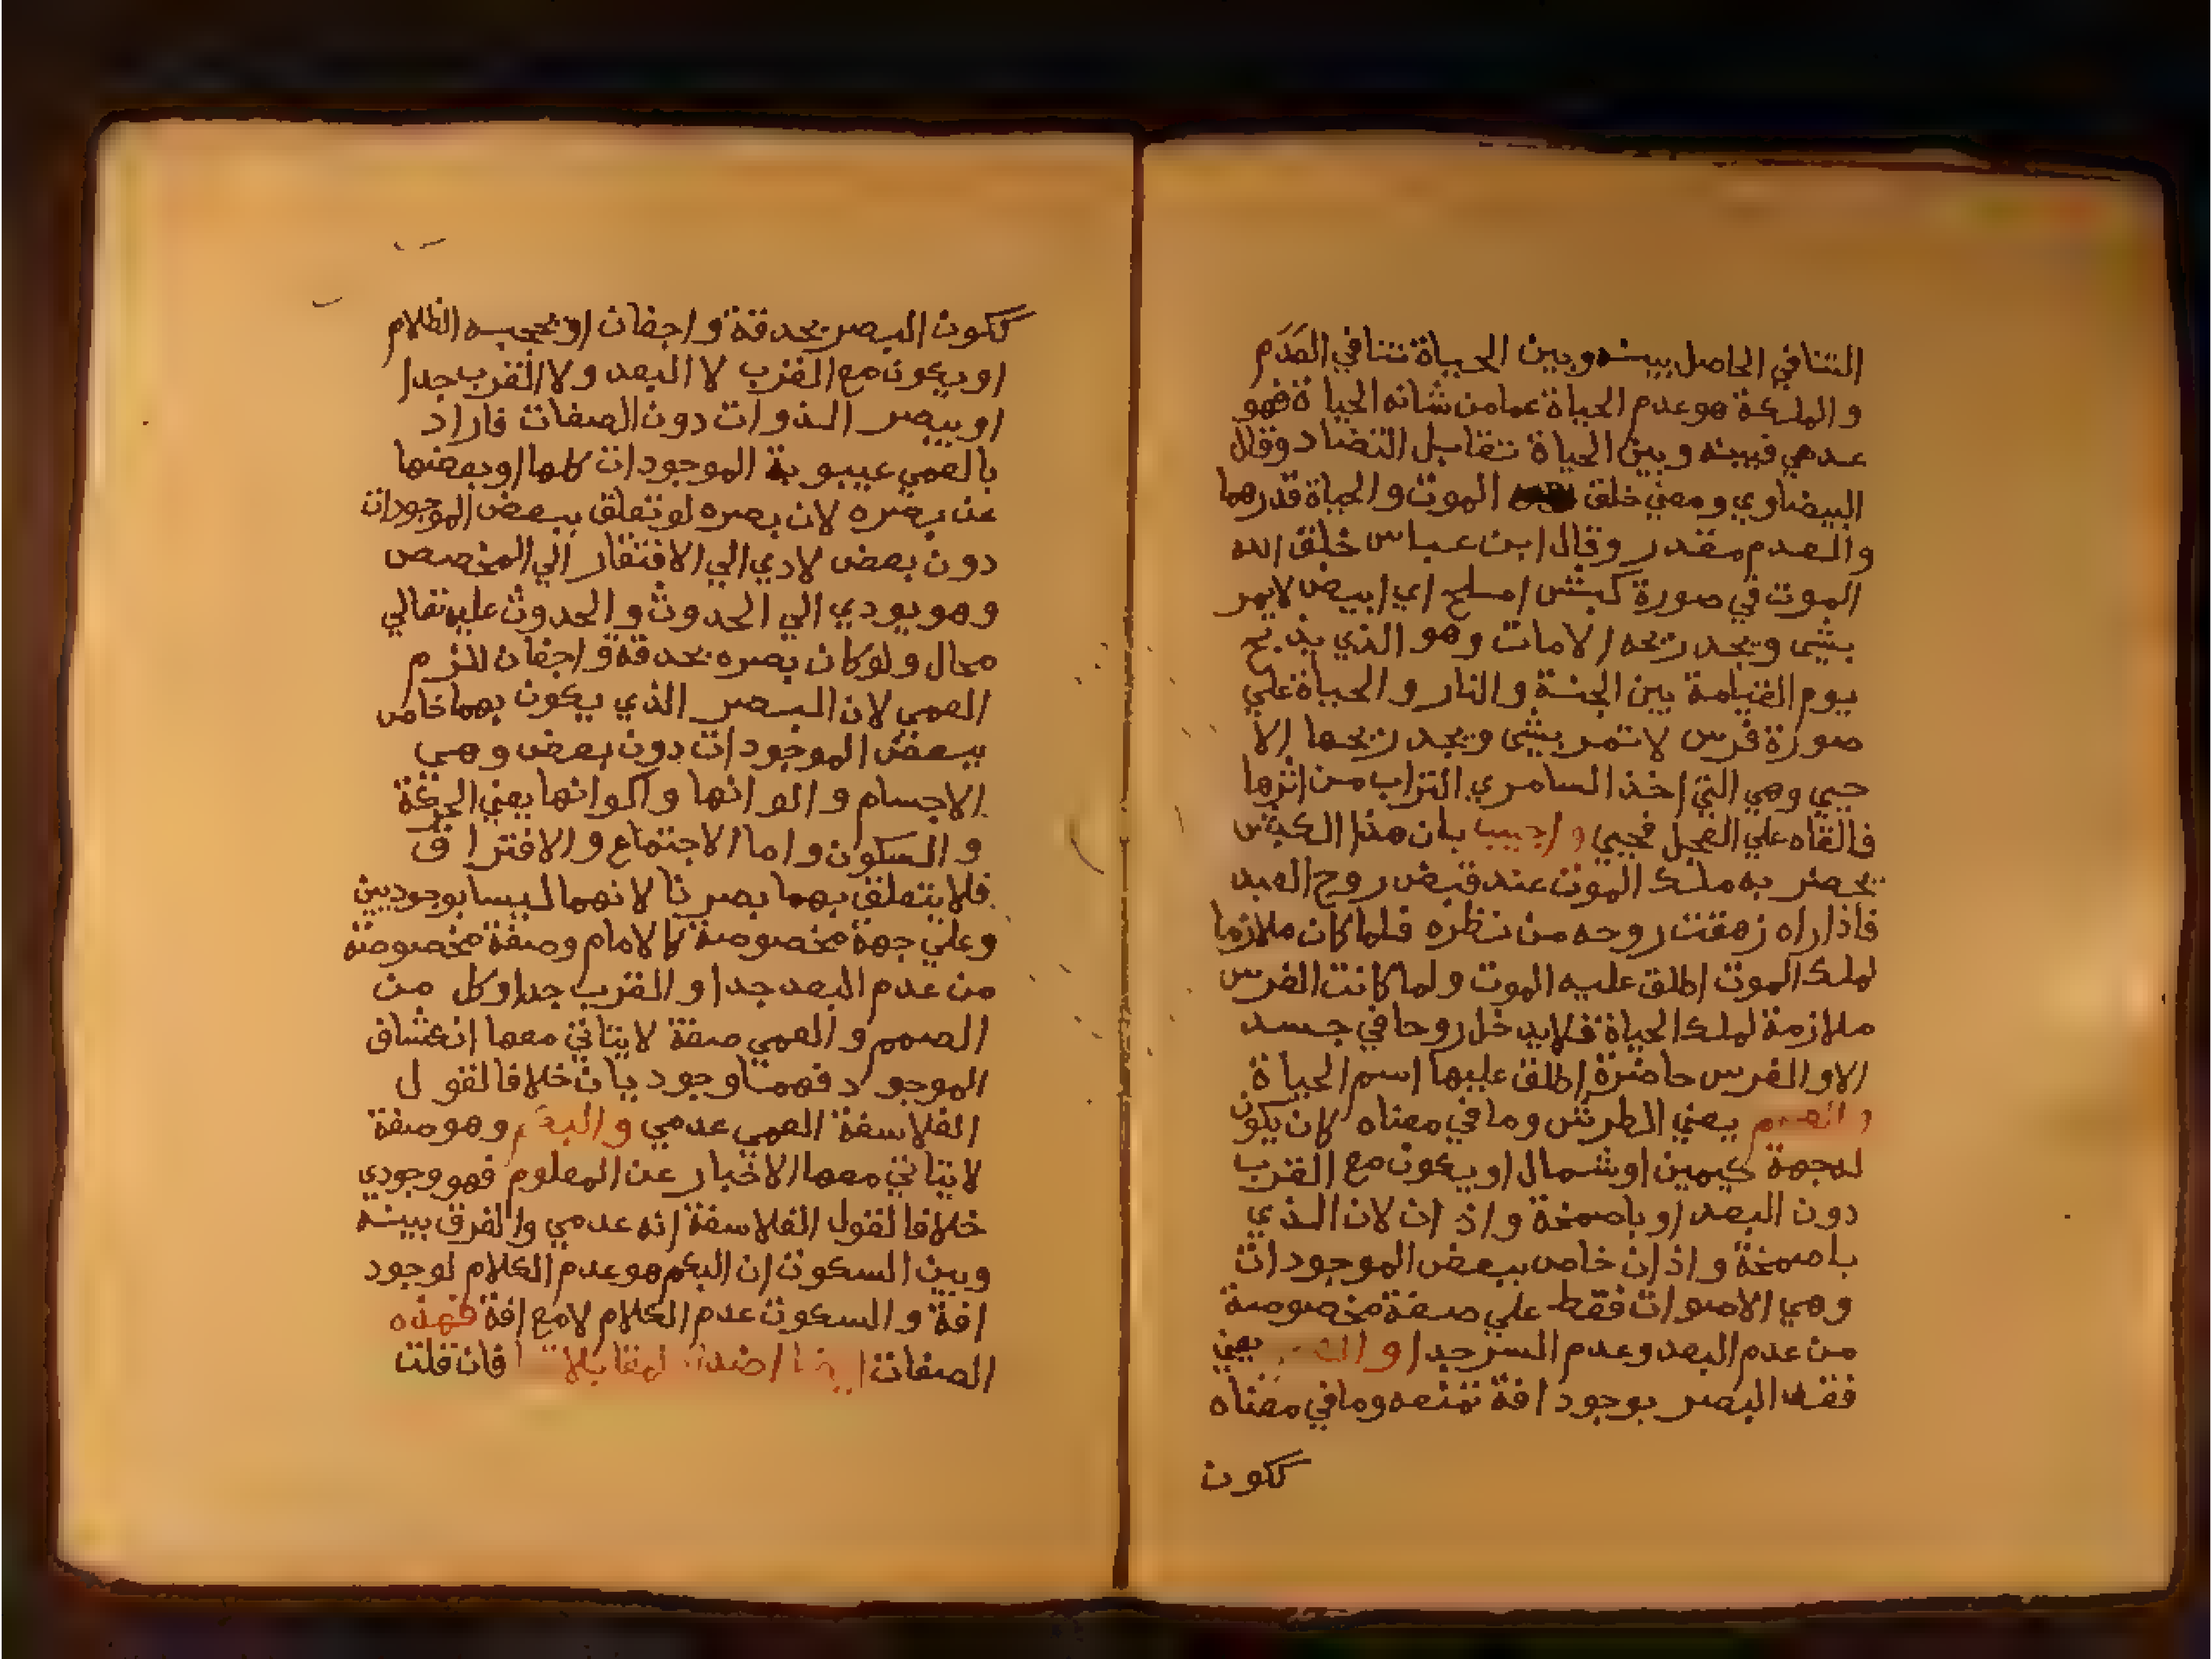 التنافي الحاصل بينه وبين الحياة تنافي العَدَم
والملكة هو عدم الحياة عما من شانه الحياة فهو
عدمي فبينه وبين الحياة تقابل التضاد وقال
البيضاوي ومعني خلق الموت والحياة قدرهما
والعدم مقدر وقال ابن عباس خلق الله
الموت في صورة كبش املح اي ابيض لا يمر
بشي ويجد ريحه الامات وهو الذي يذبح
يوم القيامة بين الجنة والنار والحياة علي
صورة فرس لا تمر بشي ويجد ريحها الا
حيي وهي التي اخذ السامري التراب من اثرها
فالقاه علي العجل فحيي واجيب بان هذا الكبش
يحضر به ملك الموت عند قبض روح العبد
فاذا راه زهقت روحه من نظره فلما كان ملازما
لملك الموت اطلق عليه الموت ولما كانت الفرس
ملازمة لملك الحياة فلا يدخل روحا في جسد
الا والفرس حاضرة اطلق عليها اسم الحياة
والصمم يعني الطرش وما في معناه لان يكون
لجهة كيمين او شمال او يكون مع القرب
دون البعد او باصمخة واذان لان الذي
باصمخة واذان خاص ببعض الموجودات
وهي الاصوات فقط علي صفة مخصوصة
من عدم البعد وعدم السر جدا يعني
فقد البصر بوجود افة تمنعه وما في معناه
ككون
ككون البصر بحدقة واجفان او يحجبه الظلام
او يكون مع القرب لا البعد ولا القرب جدا
او يبصر الذوات دون الصفات فاراد
بالعمي غيبوبة الموجودات كلها او بعضها
عن بصره لان بصره لو تعلق ببعض الموجودات
دون بعض لادي الي الافتقار الي المخصص
وهو يودي الي الحدوث والحدوث عليه تعالي
محال ولو كان بصره بحدقة واجفان للزم
العمي لان البصر الذي يكون بهما خاص
ببعض الموجودات دون بعض وهي
الاجسام والوانها واكوانها يعني الحركة
والسكون واما الاجتماع والافتراق
فلا يتعلق بهما بصرنا لانهما ليسا بوجوديين
وعلي جهة مخصوصة كالامام وصفة مخصوصة
من عدم البعد جدا والقرب جدا وكل من
الصمم والعمي صفة لا يتاتي معها انكشاف
الموجود فهما وجوديان خلافا لقول
الفلاسفة العمي عدمي والبكم وهو صفة
لا يتاتي معها الاخبار عن المعلوم فهو وجودي
خلافا لقول الفلاسفة انه عدمي والفرق بينه
وبين السكوت ان البكم هو عدم الكلام لوجود
افة والسكوت عدم الكلام لا مع افة فهذه
الصفات فان قلت